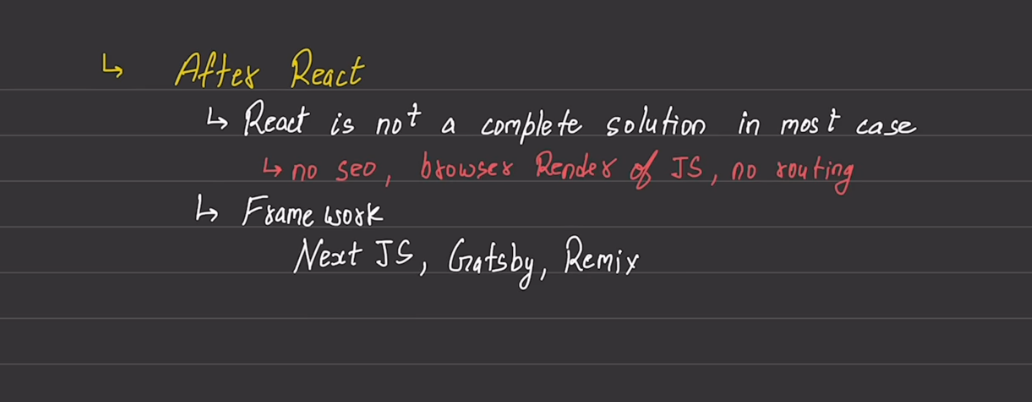 ↳ After React
↳ React is not a complete solution in most case
↳ no seo, browser Render of JS, no routing
↳ Framework
Next JS, Gatsby, Remix